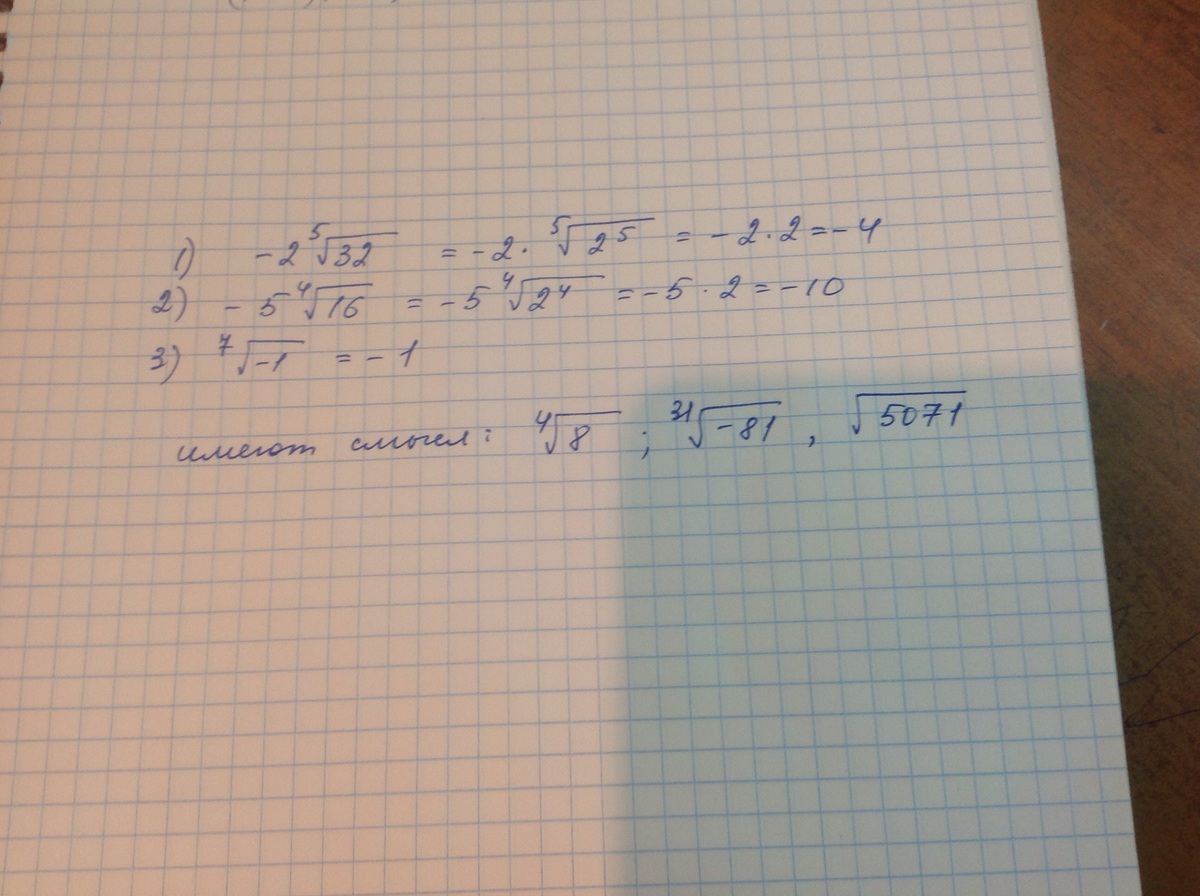 1) -2 ⁵√32 = -2 · ⁵√2⁵ = -2 · 2 = -4
2) -5 ⁴√16 = -5 ⁴√2⁴ = -5 · 2 = -10
3) ⁷√-1 = -1
имеют смысл: ⁴√8 ; ³¹√-81 , √5071